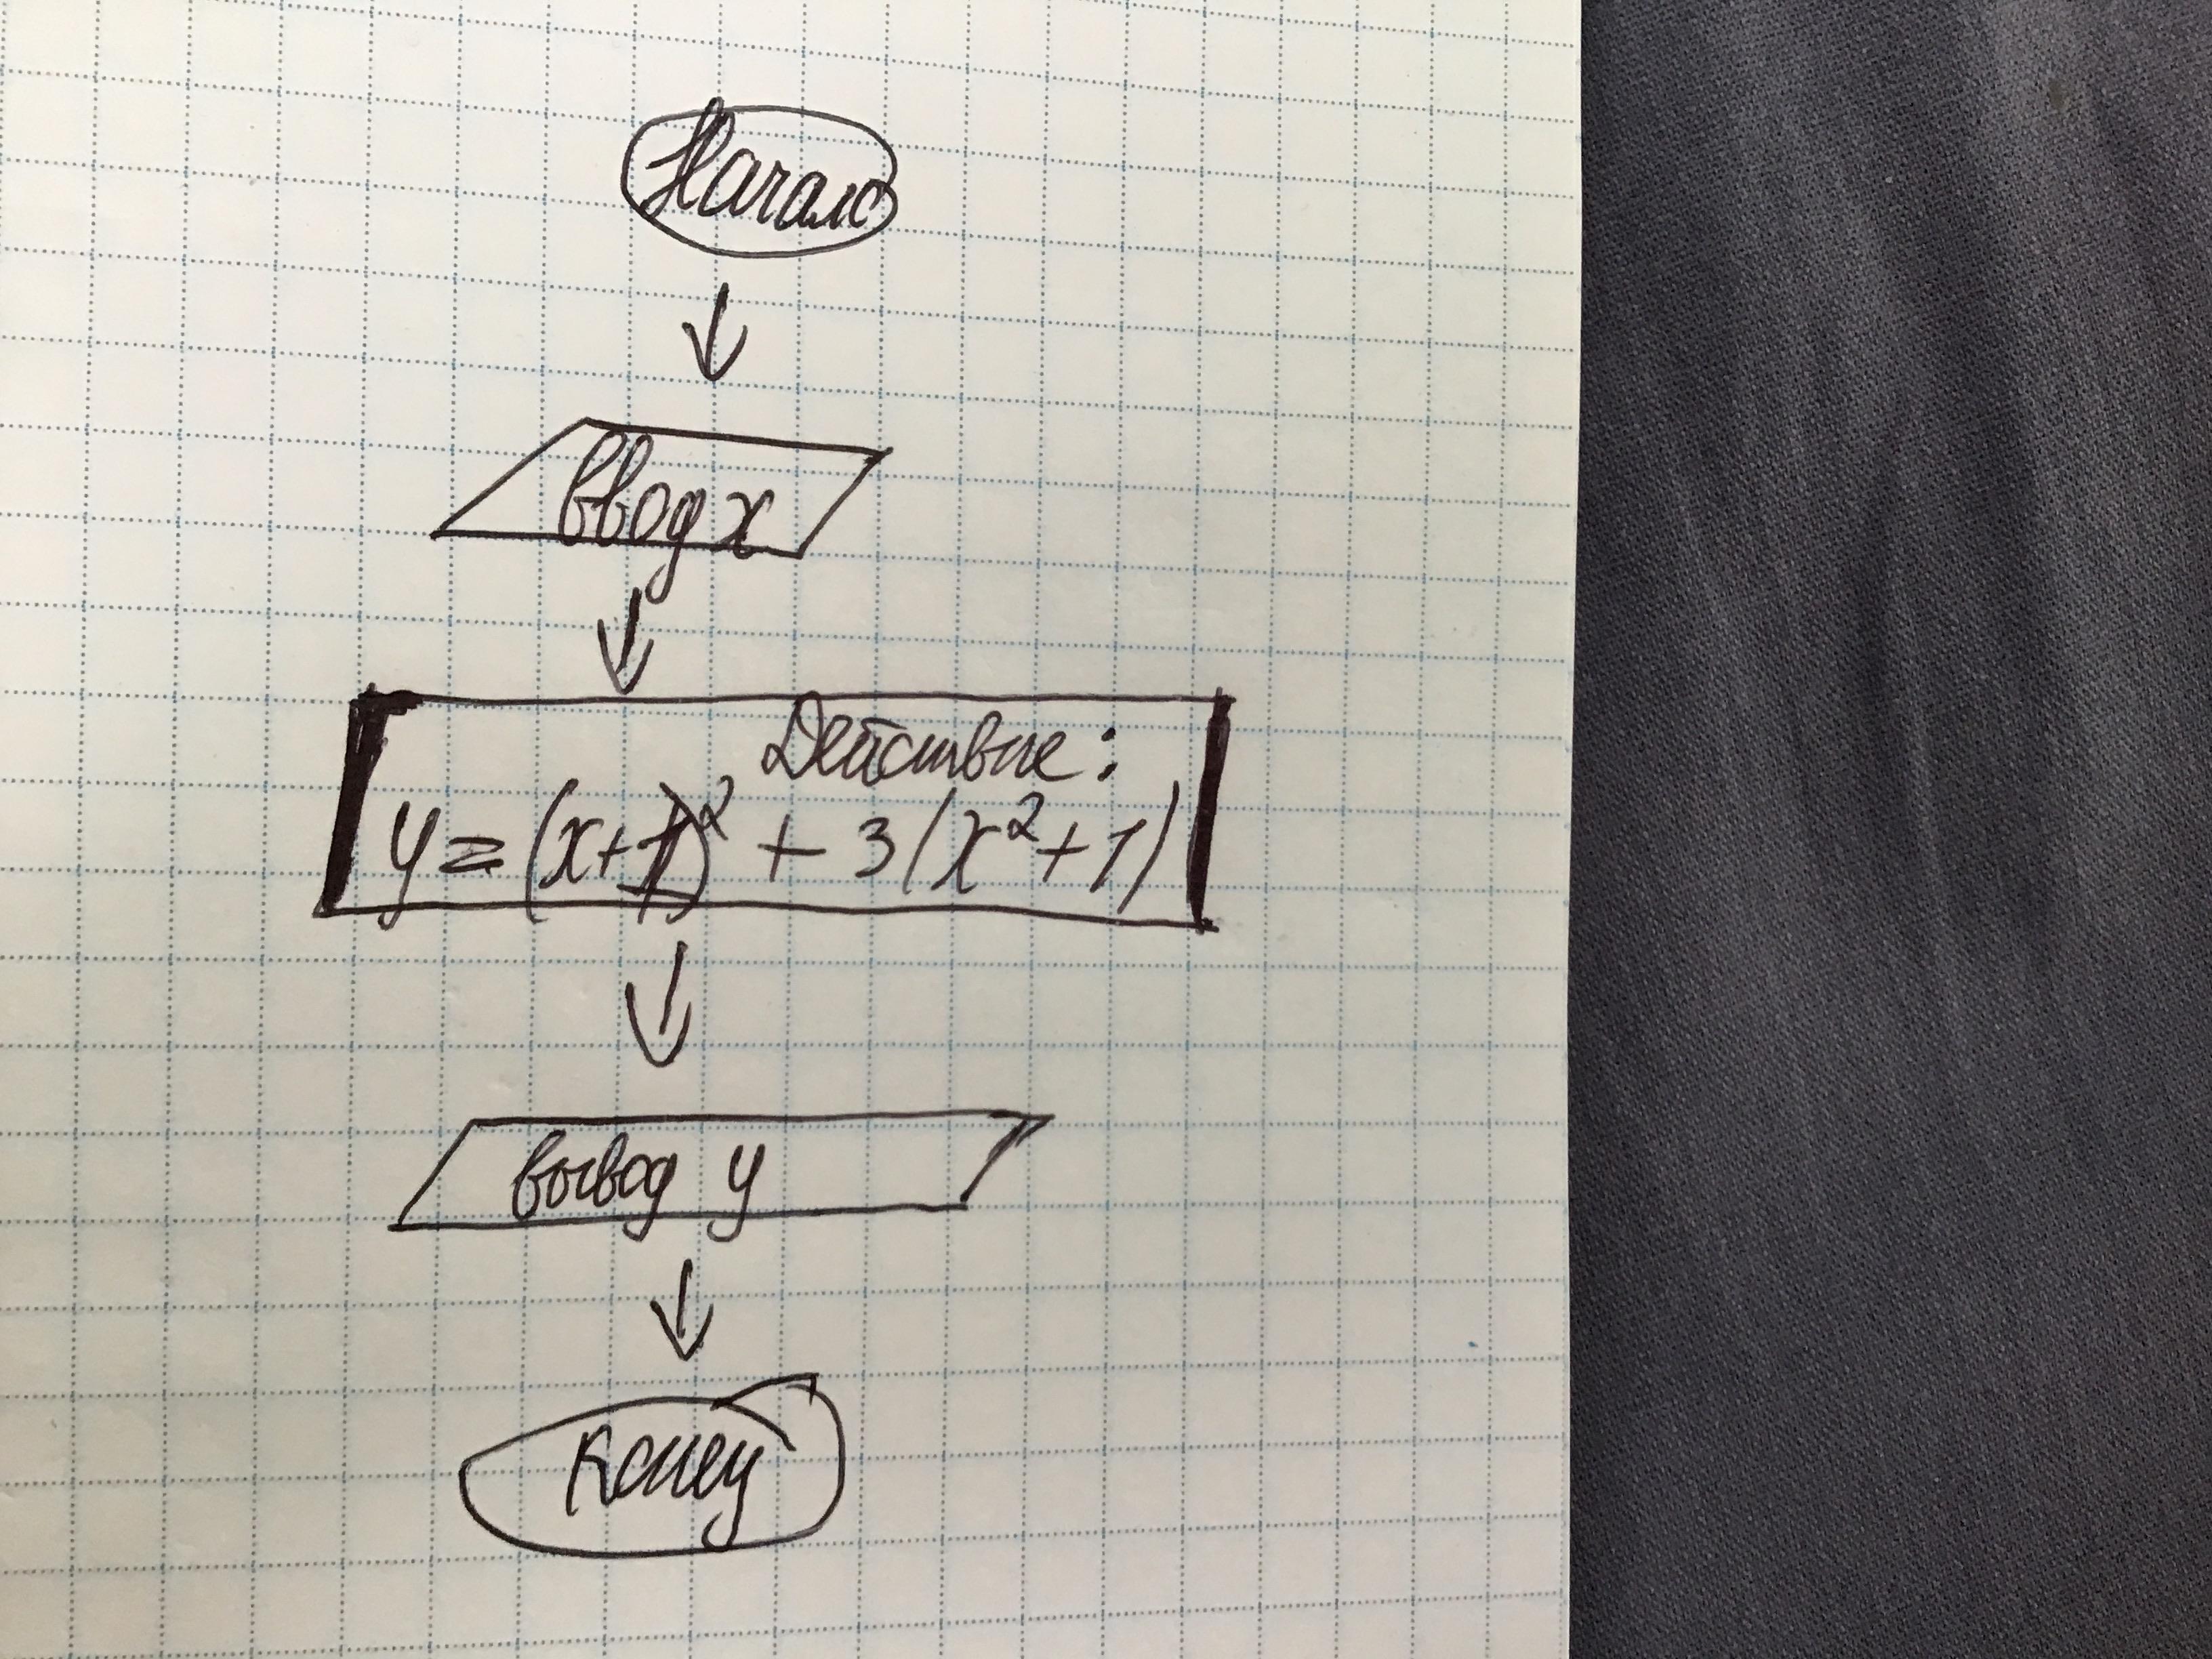 Начало
ввод x
Действие:
y = (x+1)² + 3(x²+1)
вывод y
Конец